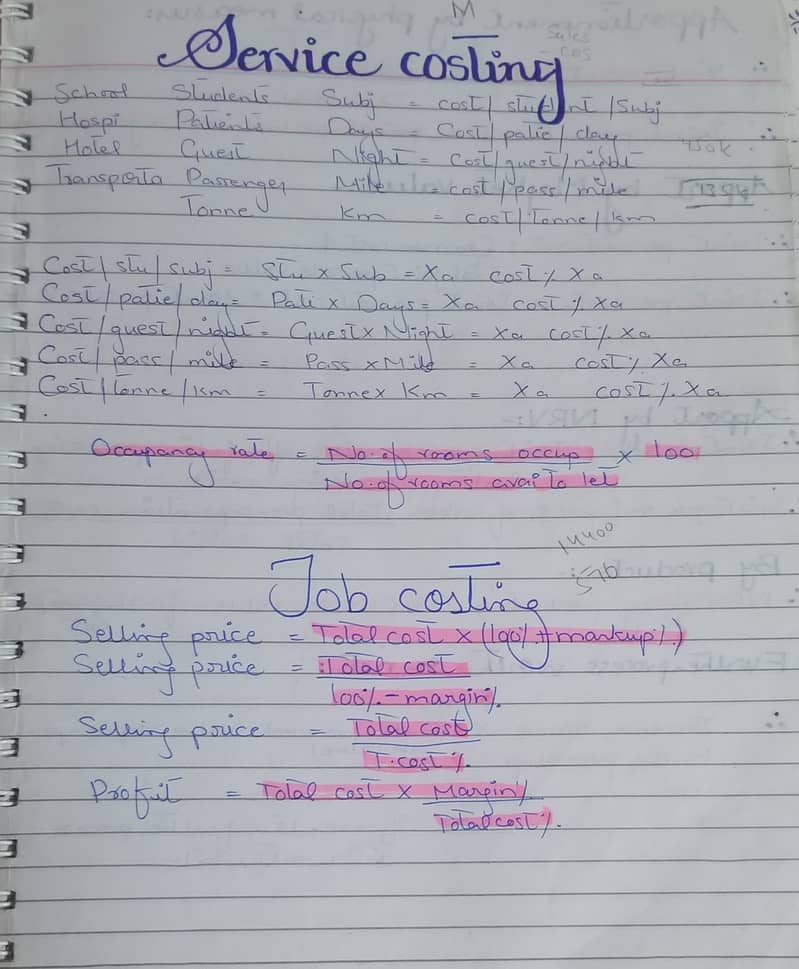 M
Sales
cos
Service costing
School Students Subj = cost/student/Subj
Hospi Patients Days = Cost/patie/day
Hotel Guest Night = Cost/guest/night
Transporta Passenger Mile = cost/pass/mile
Tonne Km = cost/Tonne/km
Cost/stu/subj = Stu x Sub = Xa cost % Xa
Cost/patie/day = Pati x Days = Xa cost % Xa
Cost/guest/night = Guest x Night = Xa cost % Xa
Cost/pass/mile = Pass x Mile = Xa cost % Xa
Cost/Tonne/km = Tonne x Km = Xa cost % Xa
Occupancy rate = No. of rooms occup x 100
No. of rooms avai to let
14400
Job costing
Selling price = Total cost x (100% + markup%)
Selling price = Total cost
100% - margin%
Selling price = Total cost
T.cost%
Profit = Total cost x Margin%
Total cost%.